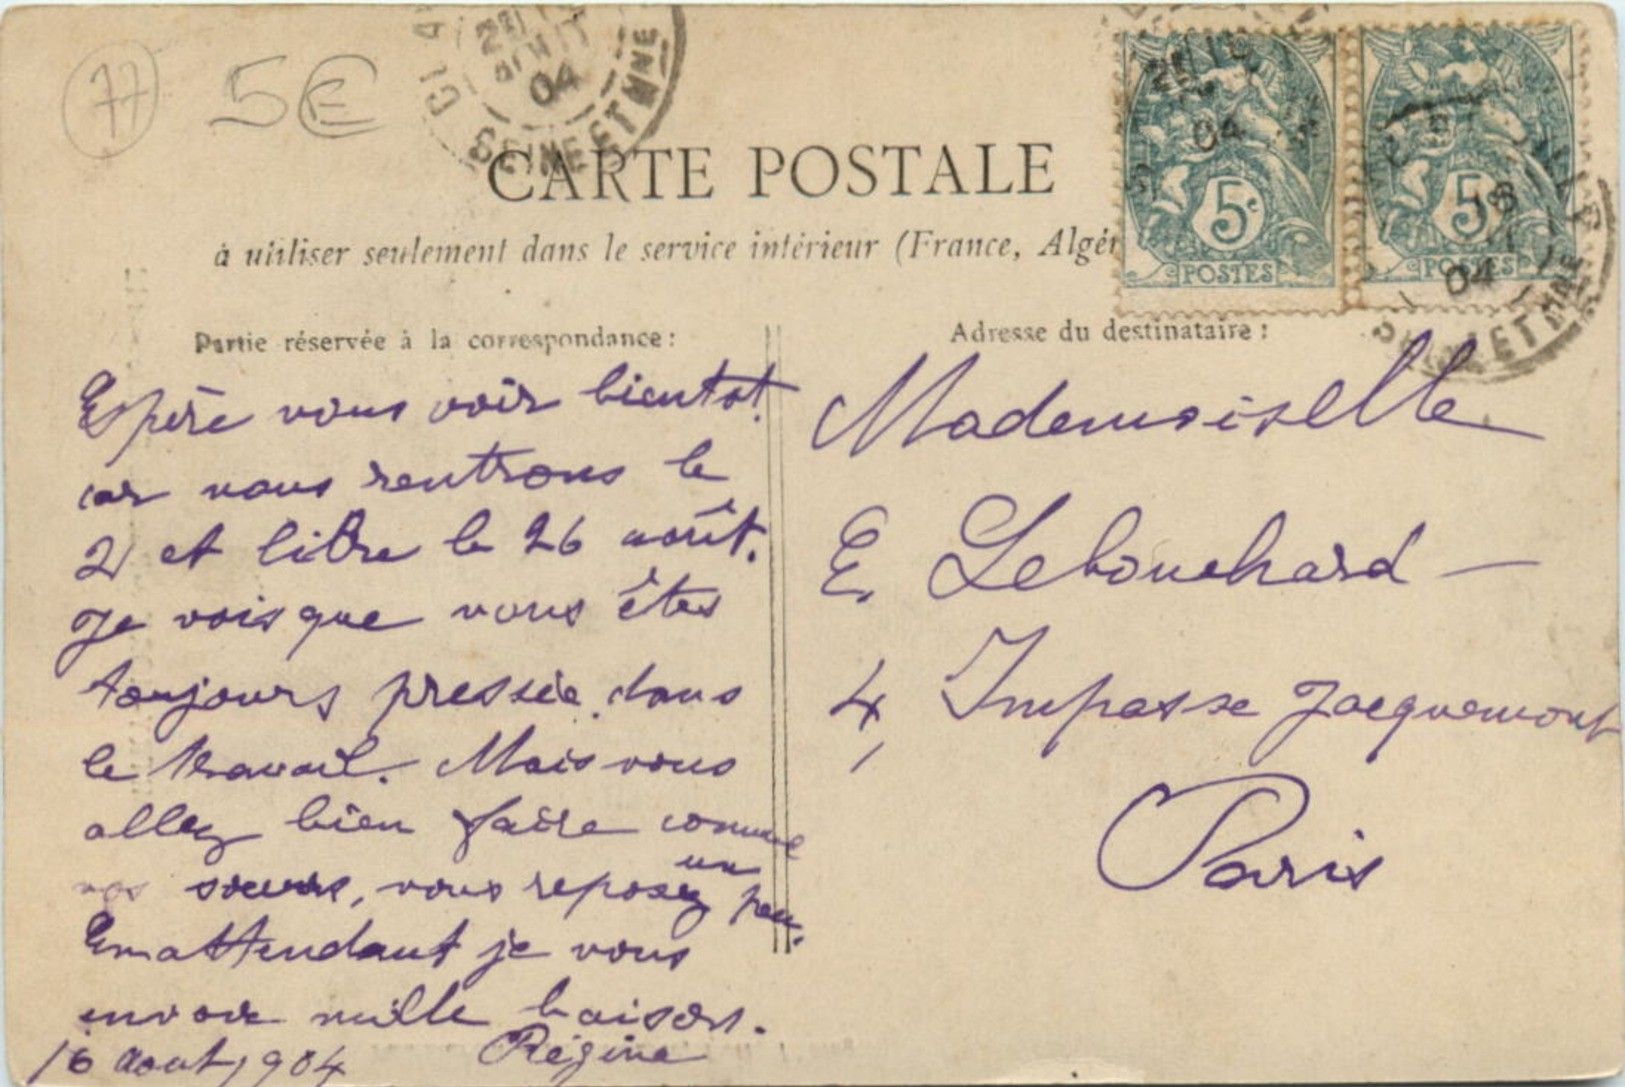 77
5€
SEINE ET MNE
04
CARTE POSTALE
à utiliser seulement dans le service intérieur (France, Algér
5c
POSTES
04
5c
POSTES
04
ET MNE
Partie réservée à la correspondance :
Espère vous voir bientot
car nous rentrons le
2 et libre le 26 août.
Je vois que vous êtes
toujours pressée dans
le travail. Mais vous
allez bien faire comme
vos soeurs, vous reposez un peu.
En attendant je vous
envoie mille baisers.
16 Aout 1904 Régine
Adresse du destinataire :
Mademoiselle
E. Lebouchard
4, Impasse Jacquemont
Paris